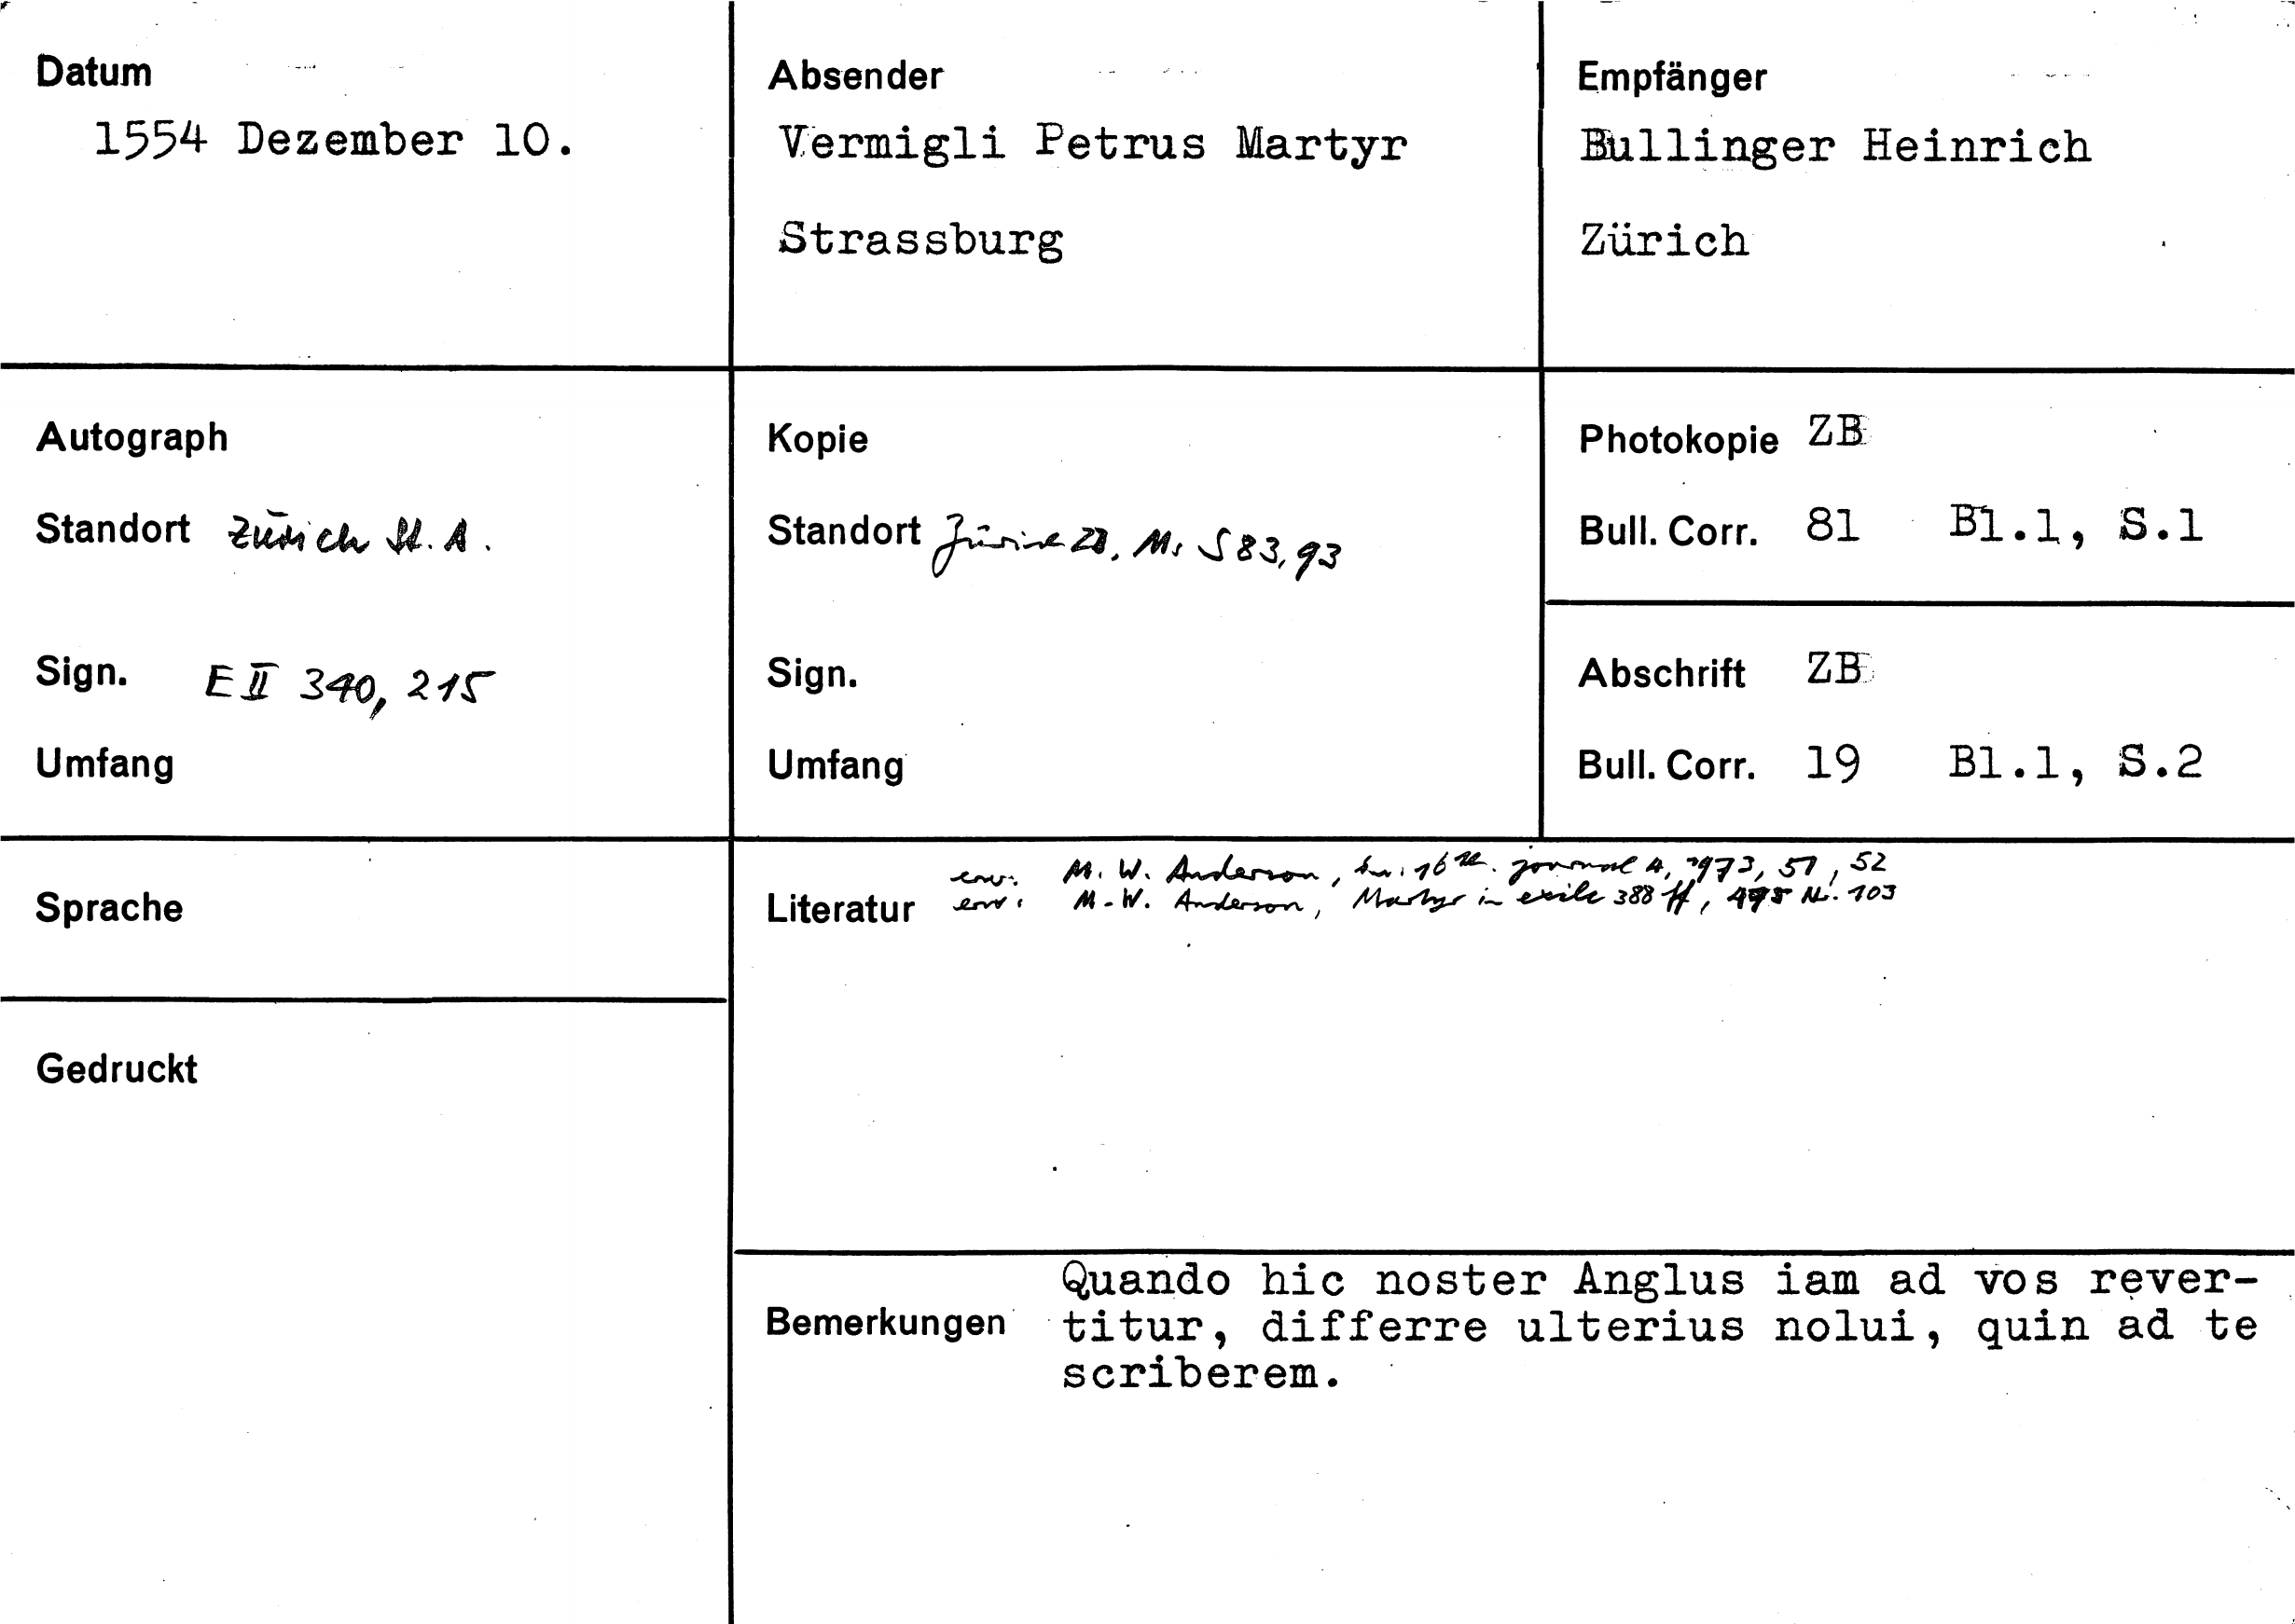 Datum
1554 Dezember 10.
Absender
Vermigli Petrus Martyr
Strassburg
Empfänger
Bullinger Heinrich
Zürich
Autograph
Standort Zürich St. A.
Sign. E II 340, 215
Umfang
Kopie
Standort Zürich ZB, Ms S 83, 93
Sign.
Umfang
Photokopie ZB
Bull. Corr. 81 Bl.1, S.1
Abschrift ZB
Bull. Corr. 19 Bl.1, S.2
Sprache
Gedruckt
Literatur
erw. M. W. Anderson, in: 16th. journal 4, 1973, 51, 52
erw. M. W. Anderson, Martyr in exile 388 ff, Nr. 103
Bemerkungen
Quando hic noster Anglus iam ad vos rever-
titur, differre ulterius nolui, quin ad te
scriberem.